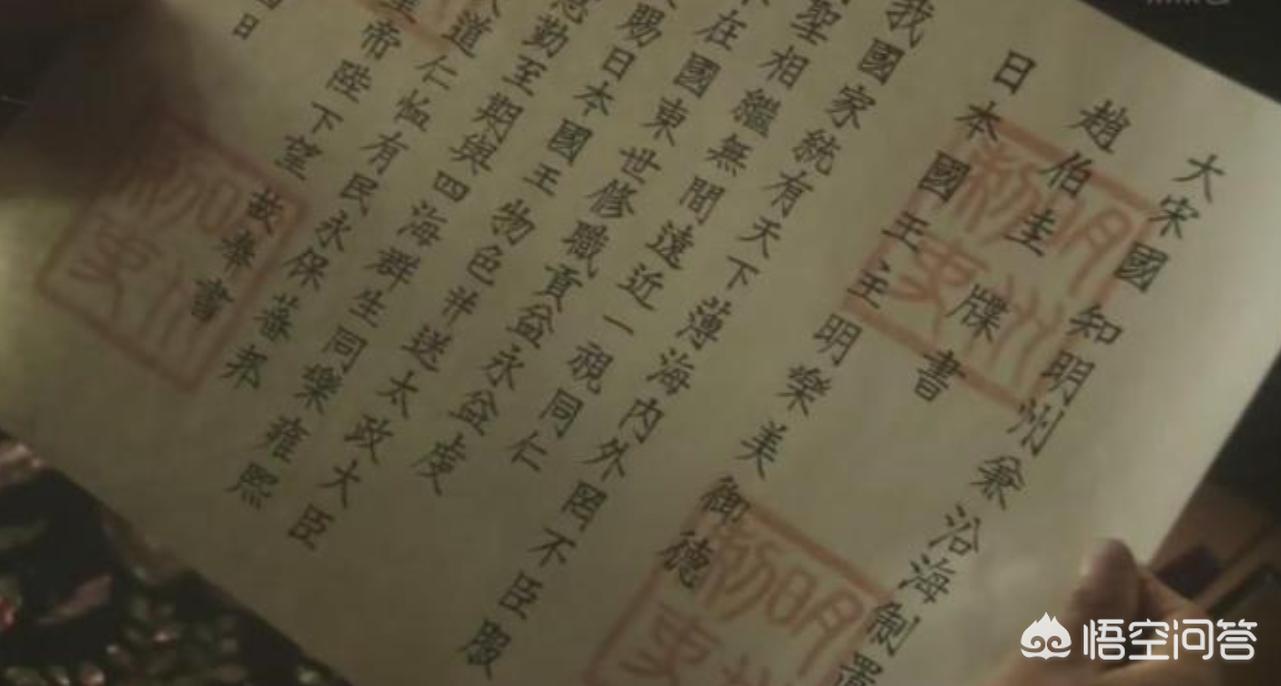 大宋國知明州兼沿海制置
趙伯圭 牒 書
日本國王主明樂美御德
我國家統有天下薄海內外罔不臣服
聖相繼無間遠近一視同仁
在國東世修職貢益永益虔
賜日本國王物色并送太政大臣
勤至期與四海群生同樂雍熙
道仁恤有民永保蕃邦
帝陛下望 故奉書
日
悟空问答